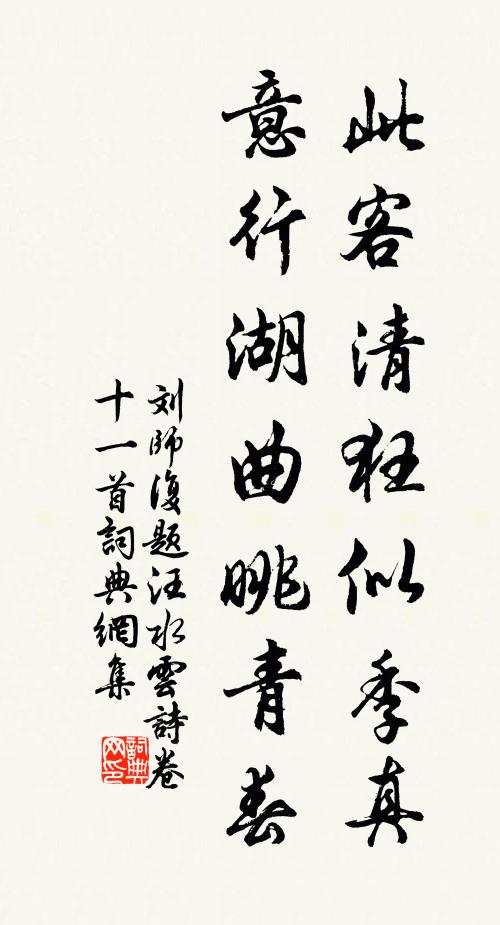 此客清狂似季真
意行湖曲眺青春
刘師復題汪水雲詩卷
十一首詞典網集
詞典网印